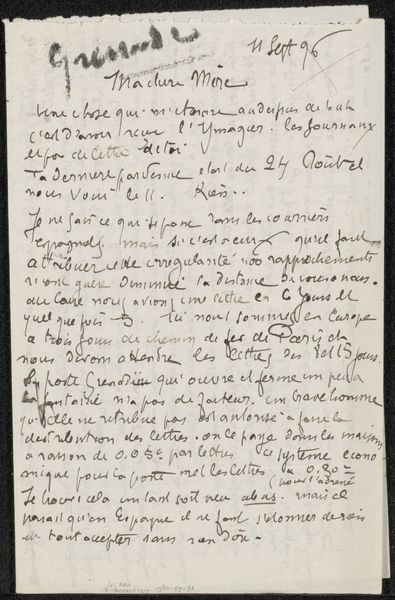 Grenade
11 Sept 96
Ma chere Mère
Une chose qui m'étonne au dessus de tout
c'est d'avoir reçu l'Ymagier. les journaux
et pas de lettre de toi
Ta dernière parvenue était du 24 Août et
nous voici le 11. Rien..
Je ne sais ce qui se passe dans les courriers
Espagnols mais si c'est à eux qu'il faut
attribuer cette irrégularité nos rapprochements
n'ont guère diminué la distance de vous à nous.
au Caire nous avions une lettre en 6 jours et
quelque fois 5. Ici nous sommes en Europe
à trois jours de chemin de fer de Paris et
nous devons attendre les lettres des 8 et 15 jours.
La poste Grenadine qui ouvre et ferme un peu à
sa fantaisie n'a pas de facteur. un brave homme
qu'elle ne rétribue pas est autorisé à faire la
distribution des lettres. on le paye dans les maisons
à raison de 0.05c par lettre ce système écono-
mique pour la poste met les lettres à 0.20c
Je trouve cela un tant soit peu abus. mais il
parait qu'en Espagne il ne faut s'étonner de rien
et tout accepter sans rien dire.